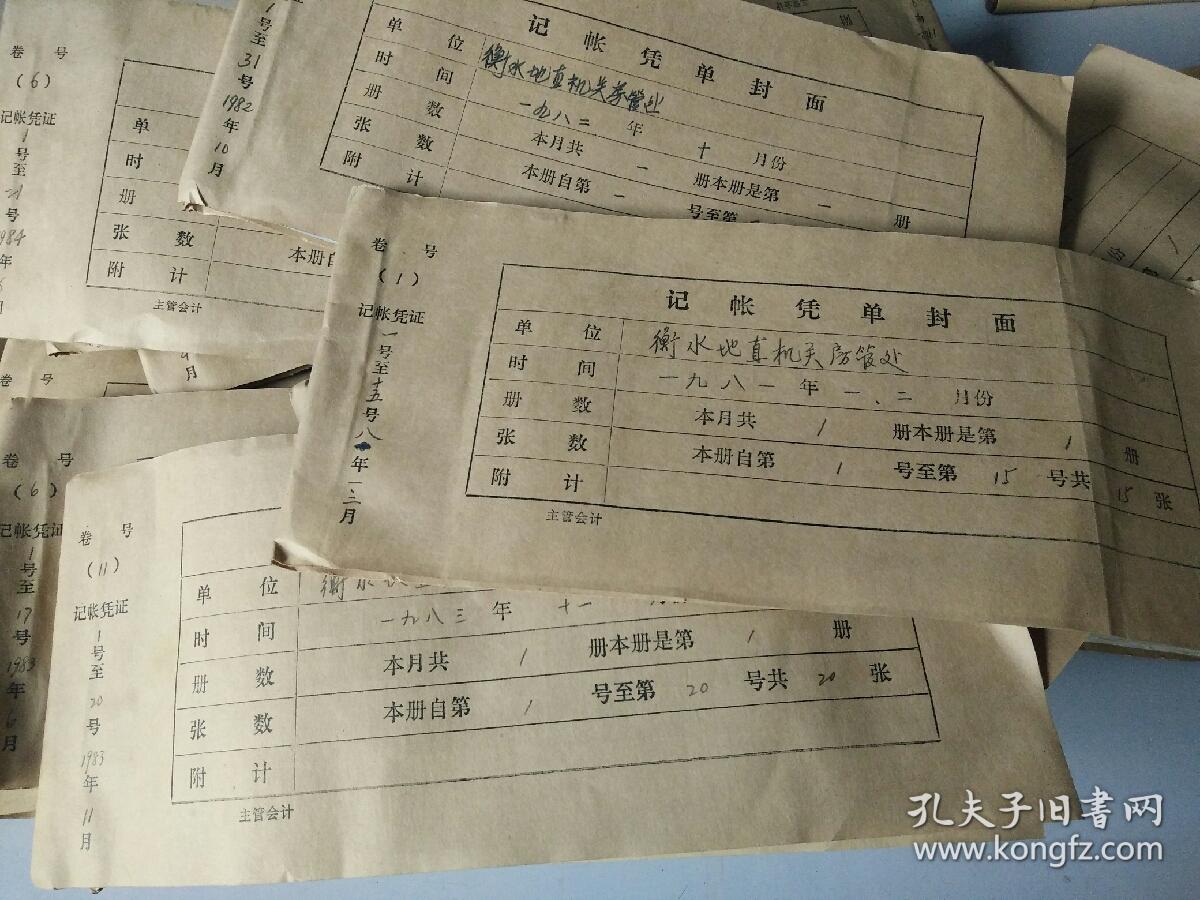 1
号至
31
号
1982
年
10
月
记帐凭单封面
单位 衡水地直机关房管处
时间 一九八二年 十 月份
册数 本月共 一 册本册是第 一 册
张数 本册自第 一 号至第
附计
卷号
(6)
记帐凭证
1
号
至
21
号
1984
年
6
月
单
时
册
张数 本册自
附计
主管会计
卷号
(1)
记帐凭证
一号至十五号八一年一、二月
记帐凭单封面
单位 衡水地直机关房管处
时间 一九八一年 一、二 月份
册数 本月共 1 册本册是第 1 册
张数 本册自第 1 号至第 15 号共 15 张
附计
主管会计
月
卷号
(6)
记帐凭证
1
号
至
17
号
1983
年
6
月
卷号
(11)
记帐凭证
1
号
至
20
号
1983
年
11
月
单位 衡水
时间 一九八三年 十一
册数 本月共 1 册本册是第 1 册
张数 本册自第 1 号至第 20 号共 20 张
附计
主管会计
孔夫子旧书网
www.kongfz.com